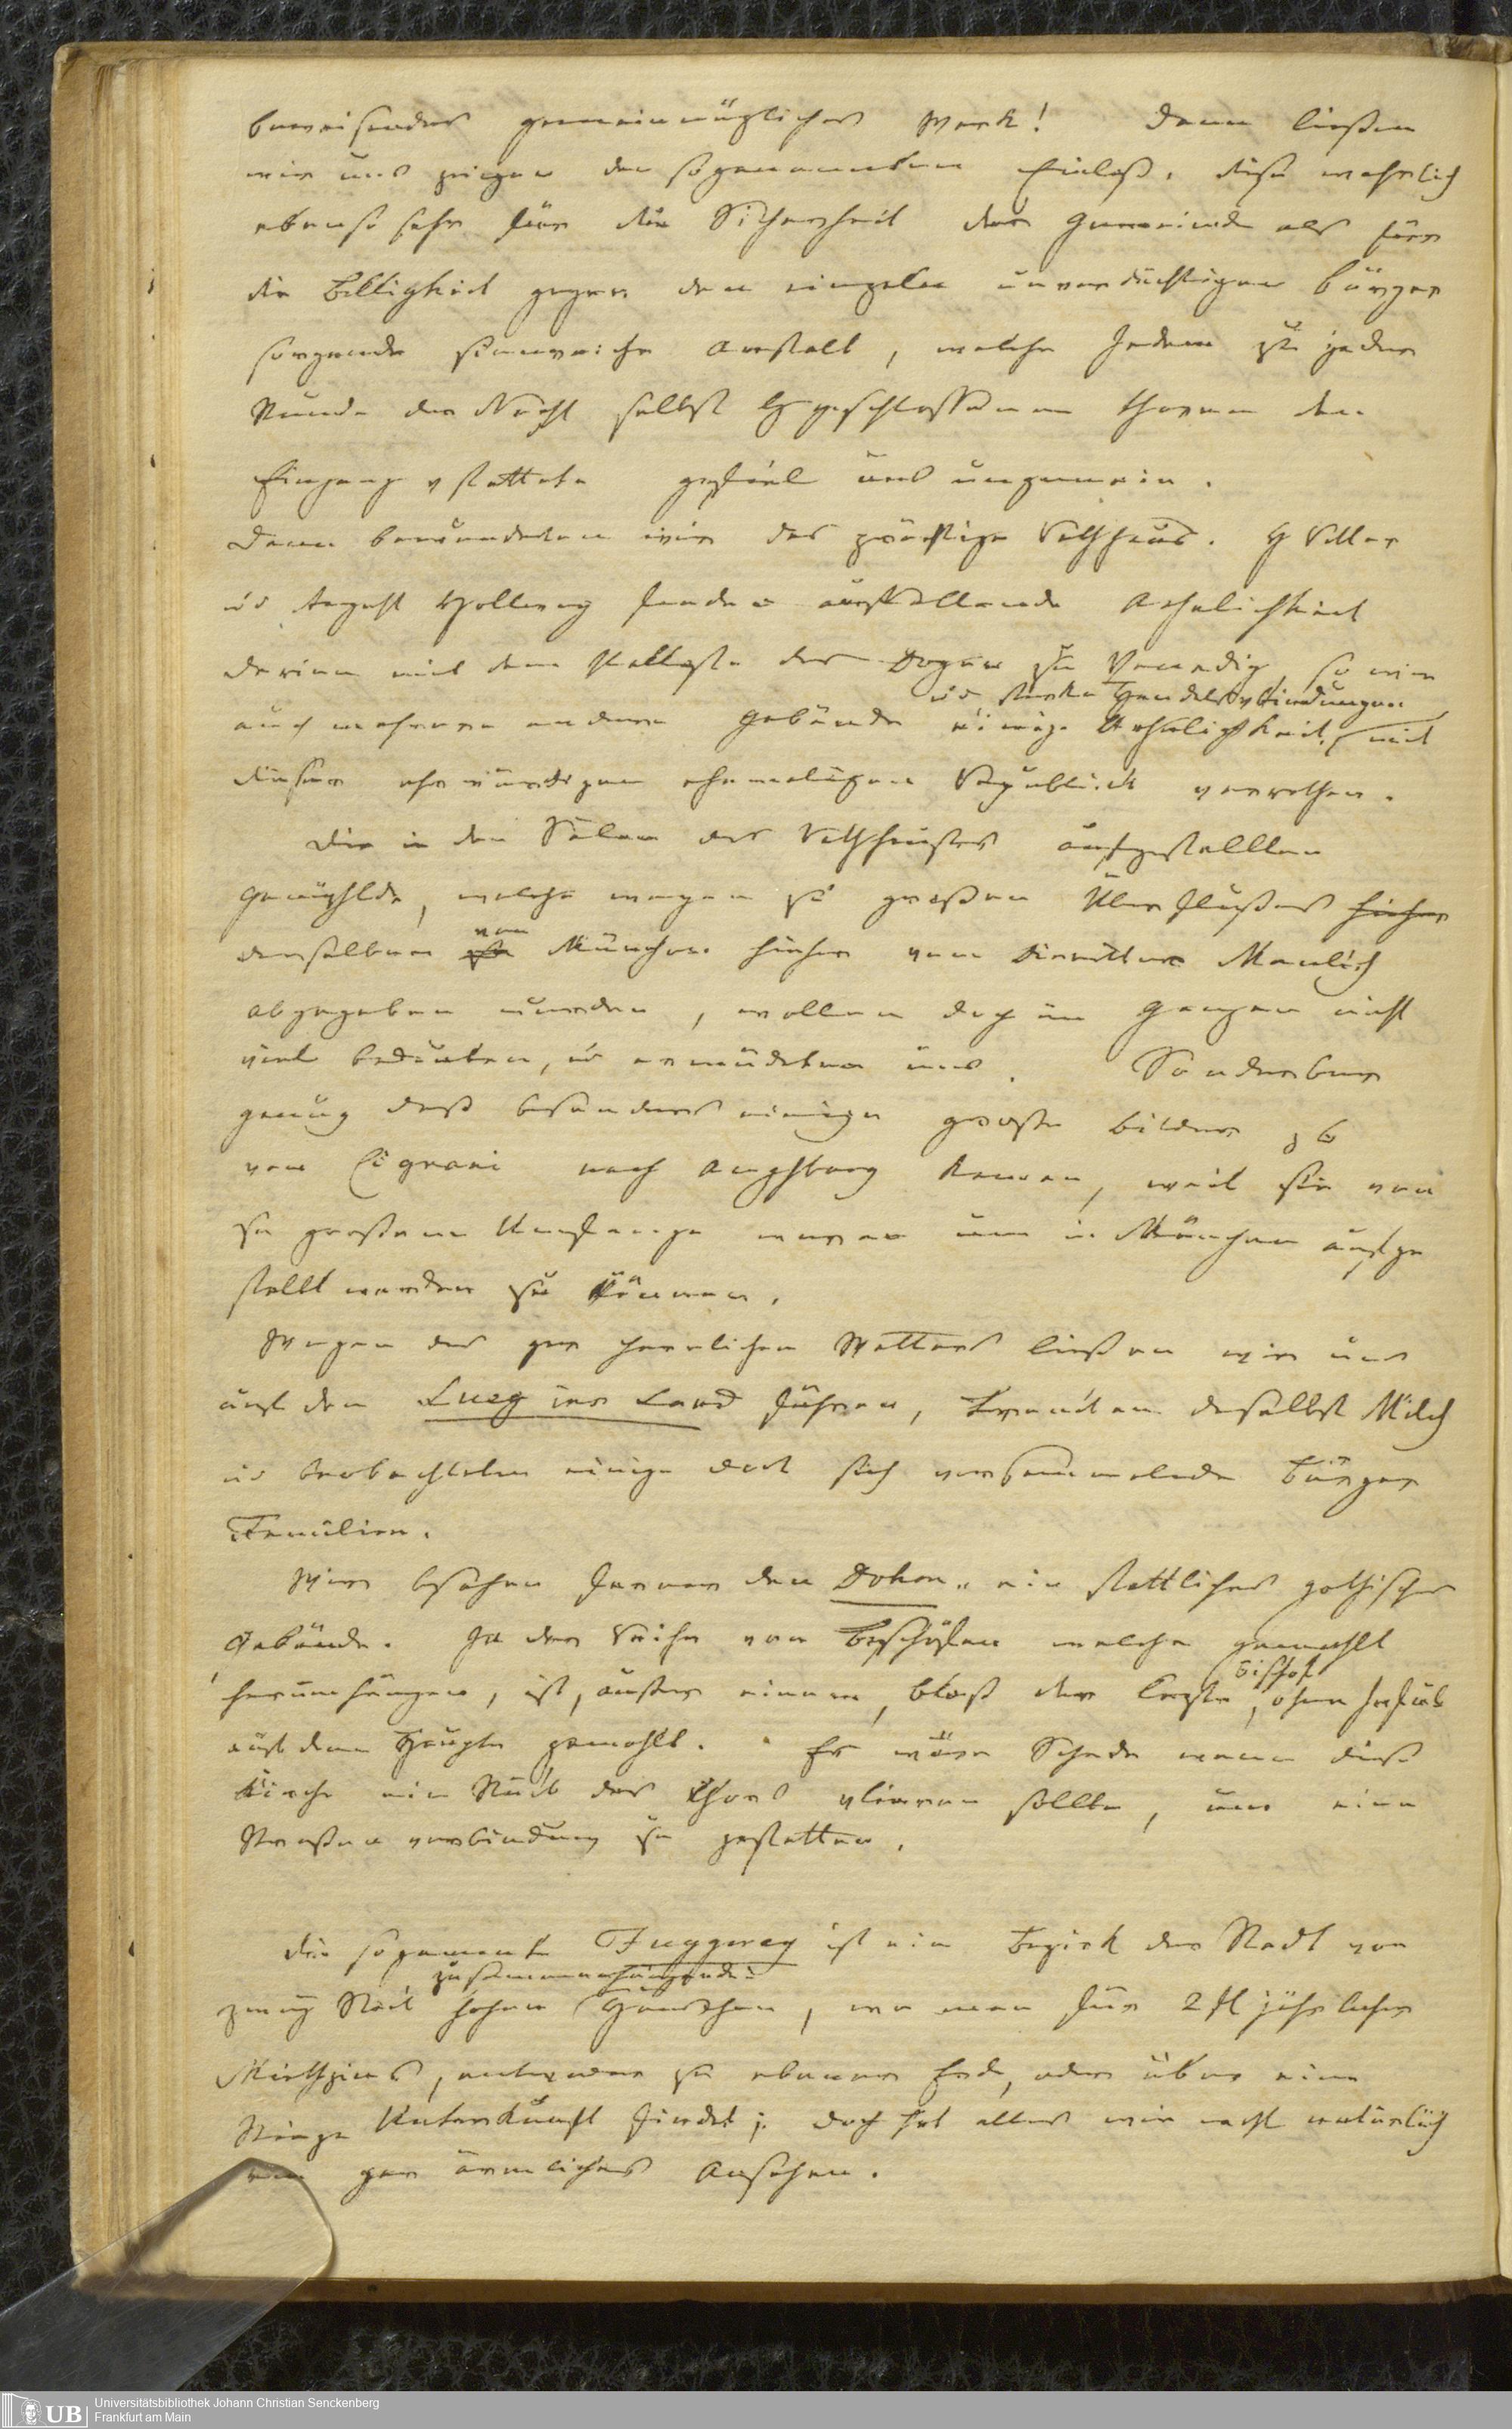 beweisendes gemeinnüzliches Werk! Dann ließen
wir uns zeigen den sogenannten Einlaß, diese wahrlich
ebenso sehr für die Sicherheit der Gemeinde als für
die Billigkeit gegen den einzelen unverdächtigen Bürger
sorgende sinnreiche Anstalt, welche Jedem zu jeder
Stunde der Nacht selbst geschlossenen Thoren den
Eingang vstattete gefiel uns ungemein.
Dann bewunderten wir das prächtige Rathhaus. H Ritter
und August Hollweg fanden auffallende Aehnlichkeit
darinn mit dem Pallaste des Dogen zu Venedig, so wie
und starke Handelsvbindungen
auch mehrere andere Gebäude einige Aehnlichkeit, mit
dieser ehrwürdigen ehemaligen Republick verrathen.
Die in den Sälen des Rathhauses aufgestellten
Gemählde, welche wegen zu großen Überflußes hieher
von
derselben zu München hieher vom Director Manlich
abgegeben wurden, wollen doch im Ganzen nicht
viel bedeuten, und ermüdeten uns. Sonderbar
genug daß besonders einige große Bilder z b
von Cignani nach Augsburg kamen, weil sie von
zu großem Umfange waren um in München aufge
stellt werden zu können.
Wegen des gar herrlichen Wetters ließen wir uns
auf den Lueg ins Land führen, tranken daselbst Milch
und beobachteten einige dort sich versammelnde Bürger
Familien.
Wir besahen ferner den Dohm, ein stattliches gothisches
Gebäude. In der Reihe von Bischöfen welche gemahlt
Bischof
herumhängen, ist, außer einem, blos der lezte, ohne Inful
auf dem Haupte gemahlt. Es wäre Schade wenn diese
Kirche ein Stück des Chors vlieren sollte, um eine
Straßen verbindung zu gestatten.
Die sogenannte Fuggerey ist ein Bezirk der Stadt von
zusammenhängende
wenig Stock hohen Häuschen, wo man für 2 fl jährlicher
Miethzins, entweder zu ebener Erde, oder über eine
Stiege Unterkunft findet; doch hat alles wie recht natürlich
ein gar ärmliches Ansehen.
Universitätsbibliothek Johann Christian Senckenberg
Frankfurt am Main
UB